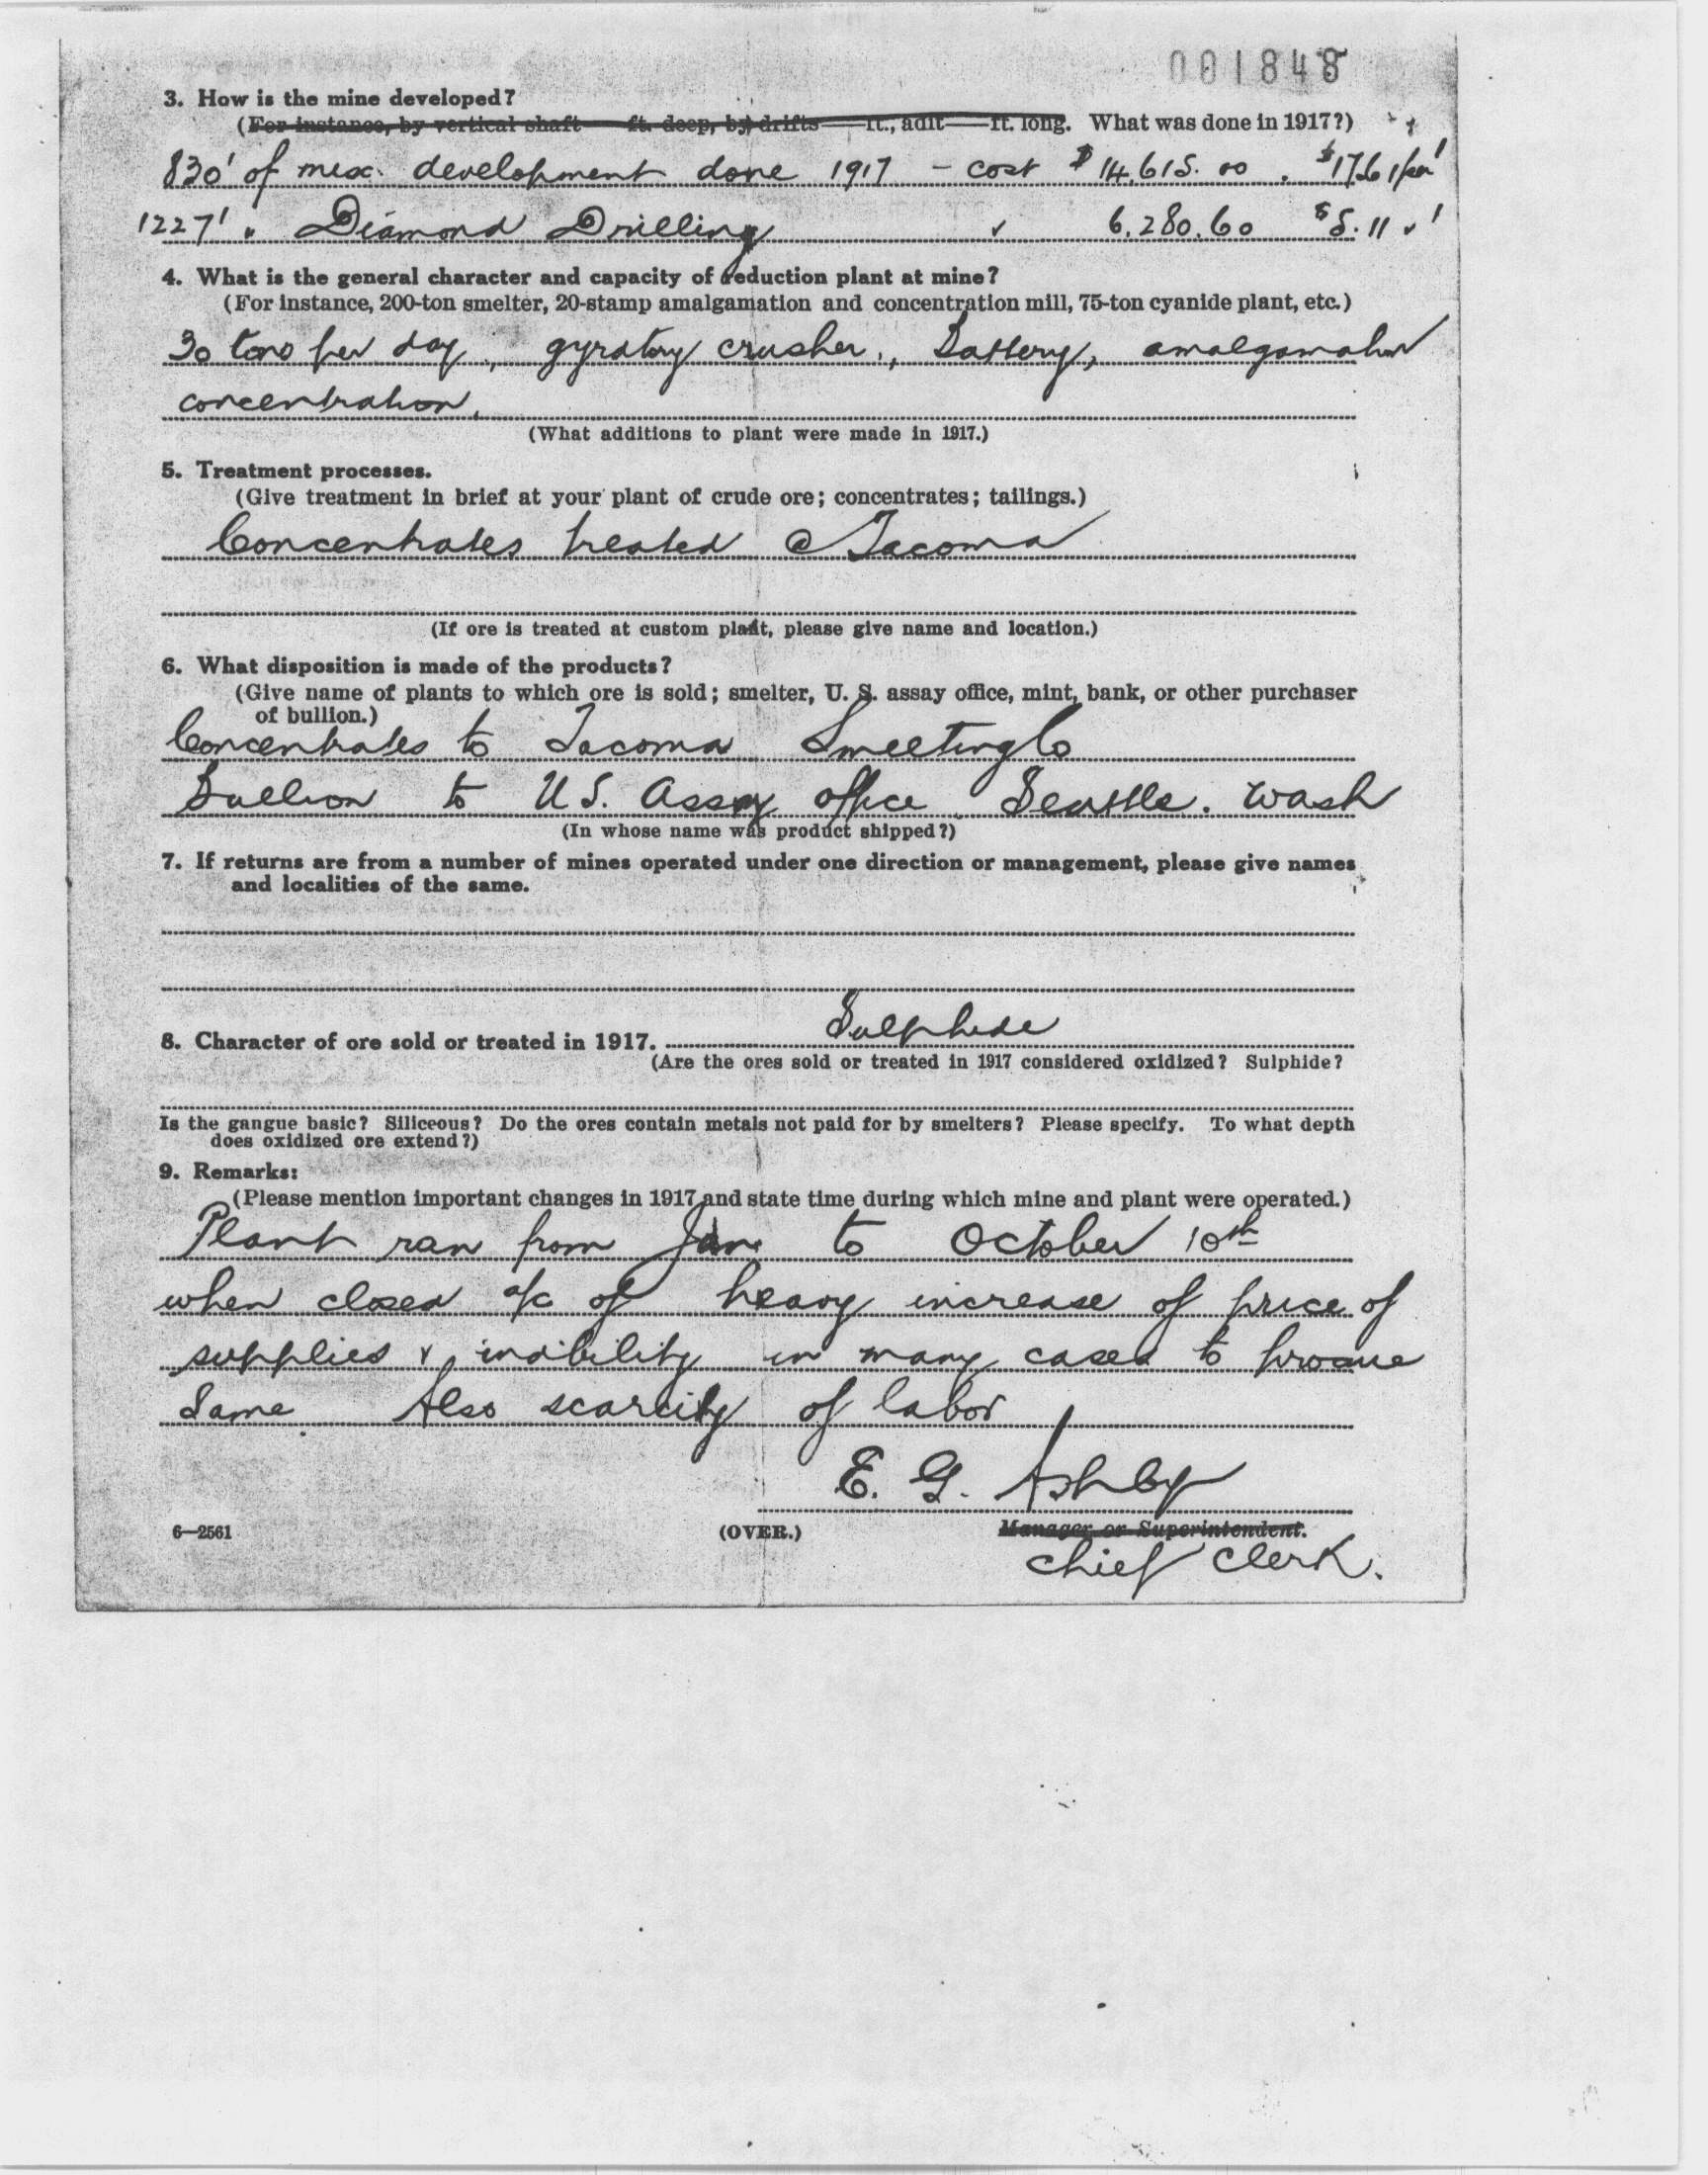 001848
3. How is the mine developed?
(For instance, by vertical shaft — ft. deep, by drifts — ft., adit — ft. long. What was done in 1917?)
830' of misc. development done 1917 - cost $14,615.00. $17.61 per '
1227' " Diamond Drilling " 6,280.60 $5.11 " '
4. What is the general character and capacity of reduction plant at mine?
(For instance, 200-ton smelter, 20-stamp amalgamation and concentration mill, 75-ton cyanide plant, etc.)
30 tons per day, gyratory crusher, Battery, amalgamation
concentration.
(What additions to plant were made in 1917.)
5. Treatment processes.
(Give treatment in brief at your plant of crude ore; concentrates; tailings.)
Concentrates treated @ Tacoma
(If ore is treated at custom plant, please give name and location.)
6. What disposition is made of the products?
(Give name of plants to which ore is sold; smelter, U. S. assay office, mint, bank, or other purchaser
of bullion.)
Concentrates to Tacoma Smelting Co
Bullion to U.S. Assay office Seattle. Wash
(In whose name was product shipped?)
7. If returns are from a number of mines operated under one direction or management, please give names
and localities of the same.
8. Character of ore sold or treated in 1917. Sulphide
(Are the ores sold or treated in 1917 considered oxidized? Sulphide?
Is the gangue basic? Siliceous? Do the ores contain metals not paid for by smelters? Please specify. To what depth
does oxidized ore extend?)
9. Remarks:
(Please mention important changes in 1917 and state time during which mine and plant were operated.)
Plant ran from to October 10th
when closed a/c of heavy increase of price of
supplies & inability in many cases to procure
same. Also scarcity of labor
E. G. Ashby
6—2561 (OVER.) Manager or Superintendent.
Chief Clerk.